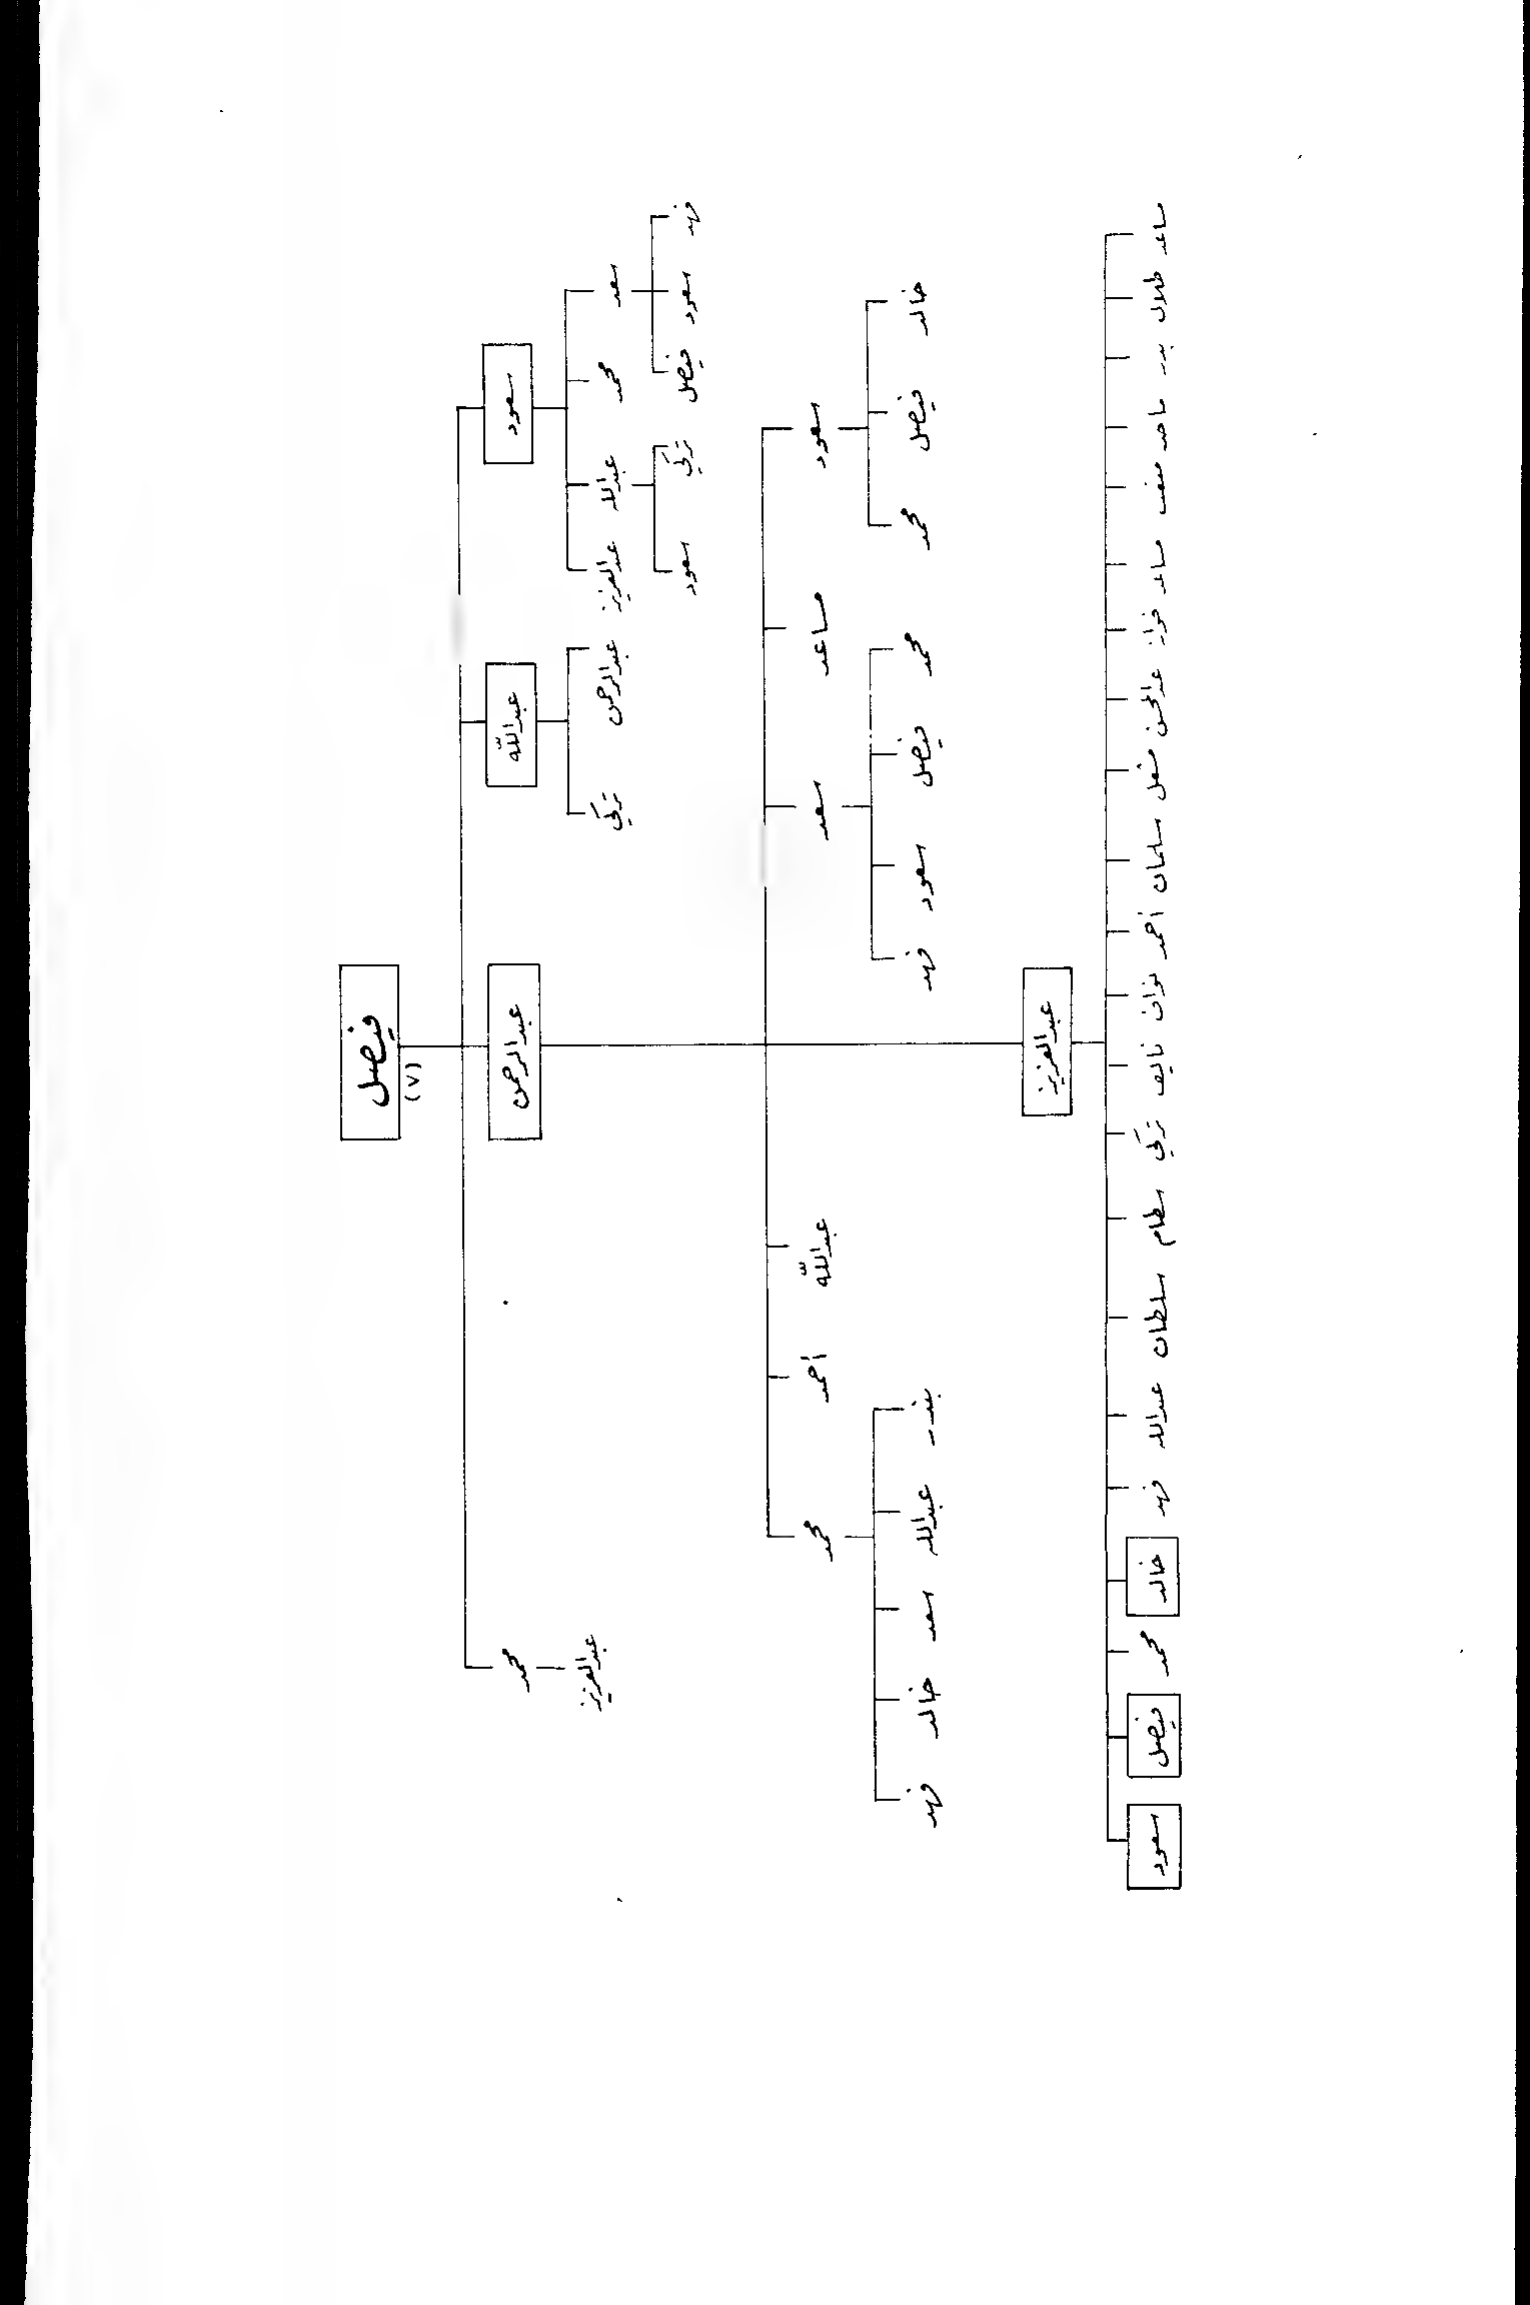 فيصل
(٧)
سعود عبدالله عبدالرحمن محمد
سعد محمد عبدالله عبدالعزيز عبدالرحمن تركي عبدالعزيز
فهد سعود فيصل تركي سعود
سعود مساعد سعد عبدالله أحمد محمد
خالد فيصل محمد محمد فيصل سعود فهد بندر عبدالله سعد خالد فهد
عبدالعزيز
ساعد طلال بدر ماجد مساعد فواز عبدالمحسن مشعل سلمان أحمد نواف نايف تركي سطام سلطان عبدالله فهد خالد محمد فيصل سعود